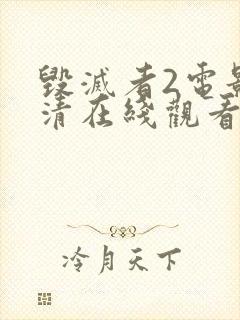 毀滅者2電影
清在綫觀看
冷月天下